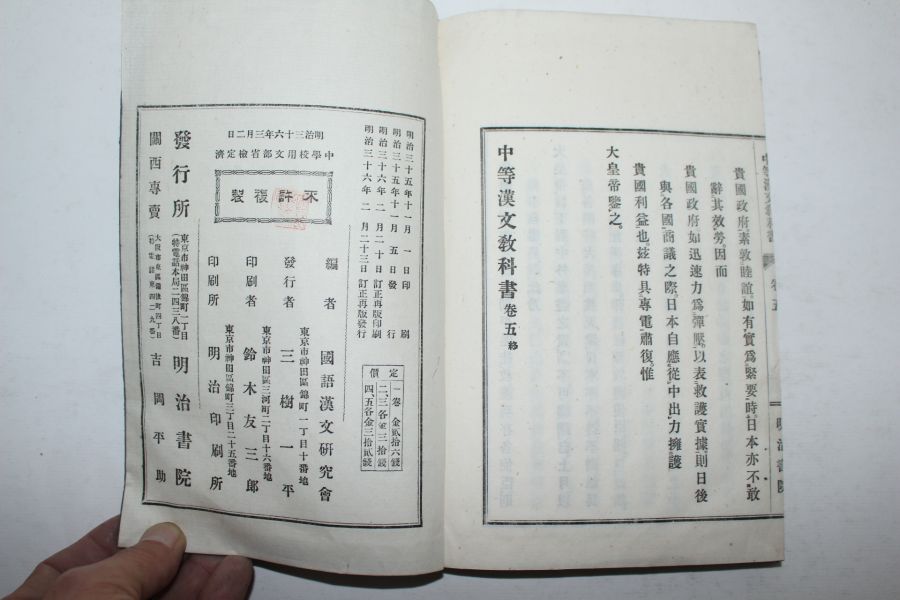 貴國政府素敦睦誼。如有實爲緊要時。日本亦不敢
辭其效勞。因而
貴國政府。如迅速力爲彈壓。以表救護實據。則日後
與各國商議之際。日本自應從中出力。擁護
貴國利益也。玆特具專電肅復。惟
大皇帝鑒之。
中等漢文敎科書 卷五 終
中等漢文敎科書 卷五 明治書院
明治三十五年十一月一日印刷
明治三十五年十一月五日發行
明治三十六年二月二十日訂正再版印刷
明治三十六年二月二十三日訂正再版發行
定價
一卷 金貳拾六錢
二、三各金三拾錢
四、五各金三拾貳錢
明治三十六年三月二日
文部省檢定濟
中學校用
不許複製
編者 國語漢文硏究會
東京市神田區錦町一丁目十番地
發行者 三樹一平
東京市神田區三河町二丁目十六番地
印刷者 鈴木友三郎
東京市神田區錦町三丁目二十五番地
印刷所 明治印刷所
發行所 東京市神田區錦町一丁目 (特電話本局二四三八番) 明治書院
關西專賣 吉岡平助